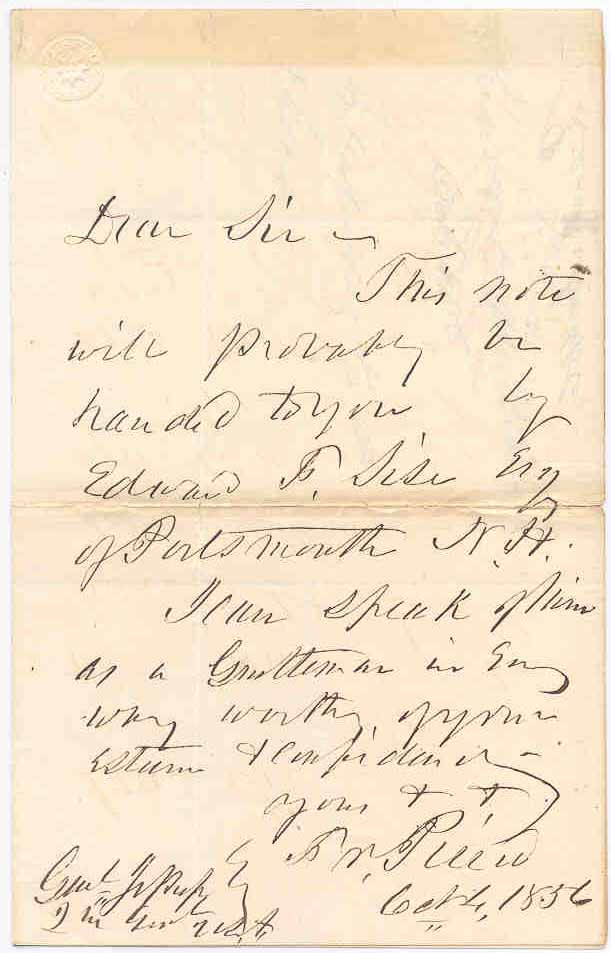 Dear Sir —
This note
will probably be
handed to you by
Edward F. Sise Esq
of Portsmouth N.H.
I can speak of him
as a Gentleman in Every
way worthy of your
Esteem & confidence —
yours & &
Fr. Pierce
Esq
Oct 4, 1856